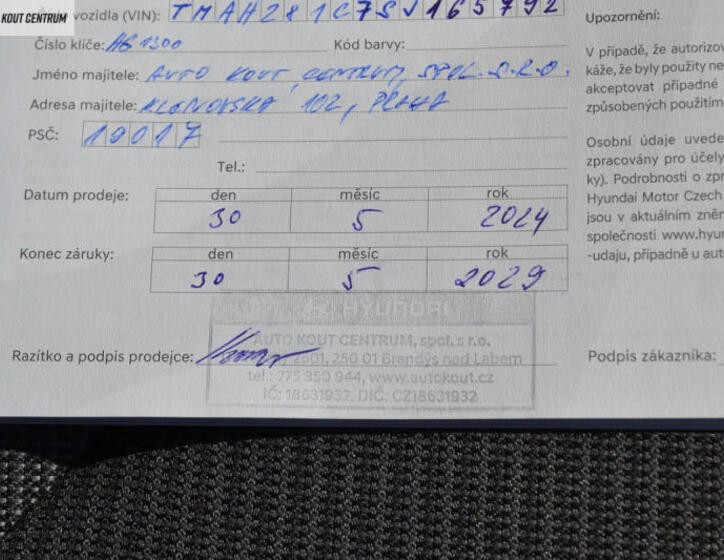 KOUT CENTRUM
vozidla (VIN): TMAH281C7SJ165792
Číslo klíče: HG1300 Kód barvy:
Jméno majitele: AUTO KOUT CENTRUM, SPOL. S.R.O.
Adresa majitele: KLÁNOVSKÁ 102, PRAHA
PSČ: 19017
Tel.:
Datum prodeje: den měsíc rok
30 5 2024
Konec záruky: den měsíc rok
30 5 2029
HYUNDAI
AUTO KOUT CENTRUM, spol. s r.o.
Razítko a podpis prodejce: 2001, 250 01 Brandýs nad Labem
tel.: 775 350 944, www.autokout.cz
IČ: 18631932, DIČ: CZ18631932
Upozornění:
V případě, že autorizov
káže, že byly použity ne
akceptovat případné
způsobených použitím
Osobní údaje uvede
zpracovány pro účely
ky). Podrobnosti o zpr
Hyundai Motor Czech
jsou v aktuálním zněn
společnosti www.hyun
-udaju, případně u auto
Podpis zákazníka: